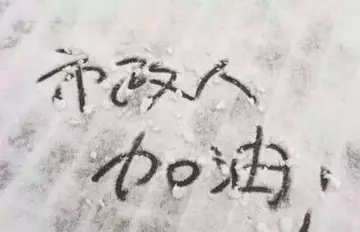 市政人
加油!